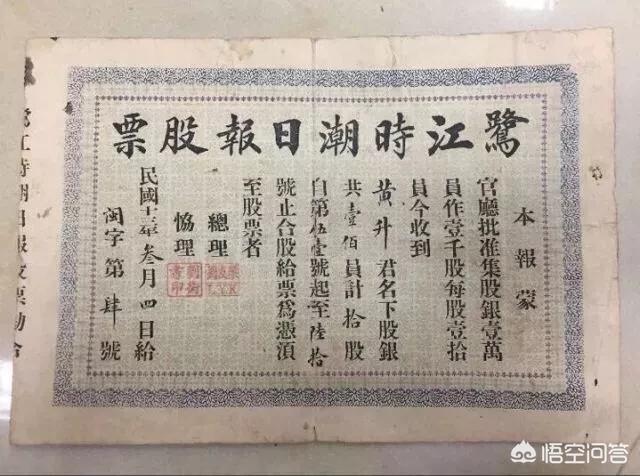 鷺江時潮日報股票
本報蒙
官廳批准集股銀壹萬
員作壹千股每股壹拾
員今收到
黄升君名下股銀
共壹佰員計拾股
自第伍壹號起至陸拾
號止合股給票爲憑湏
至股票者
總理
恊理
民國叁月四日給
閩字第肆號
悟空问答